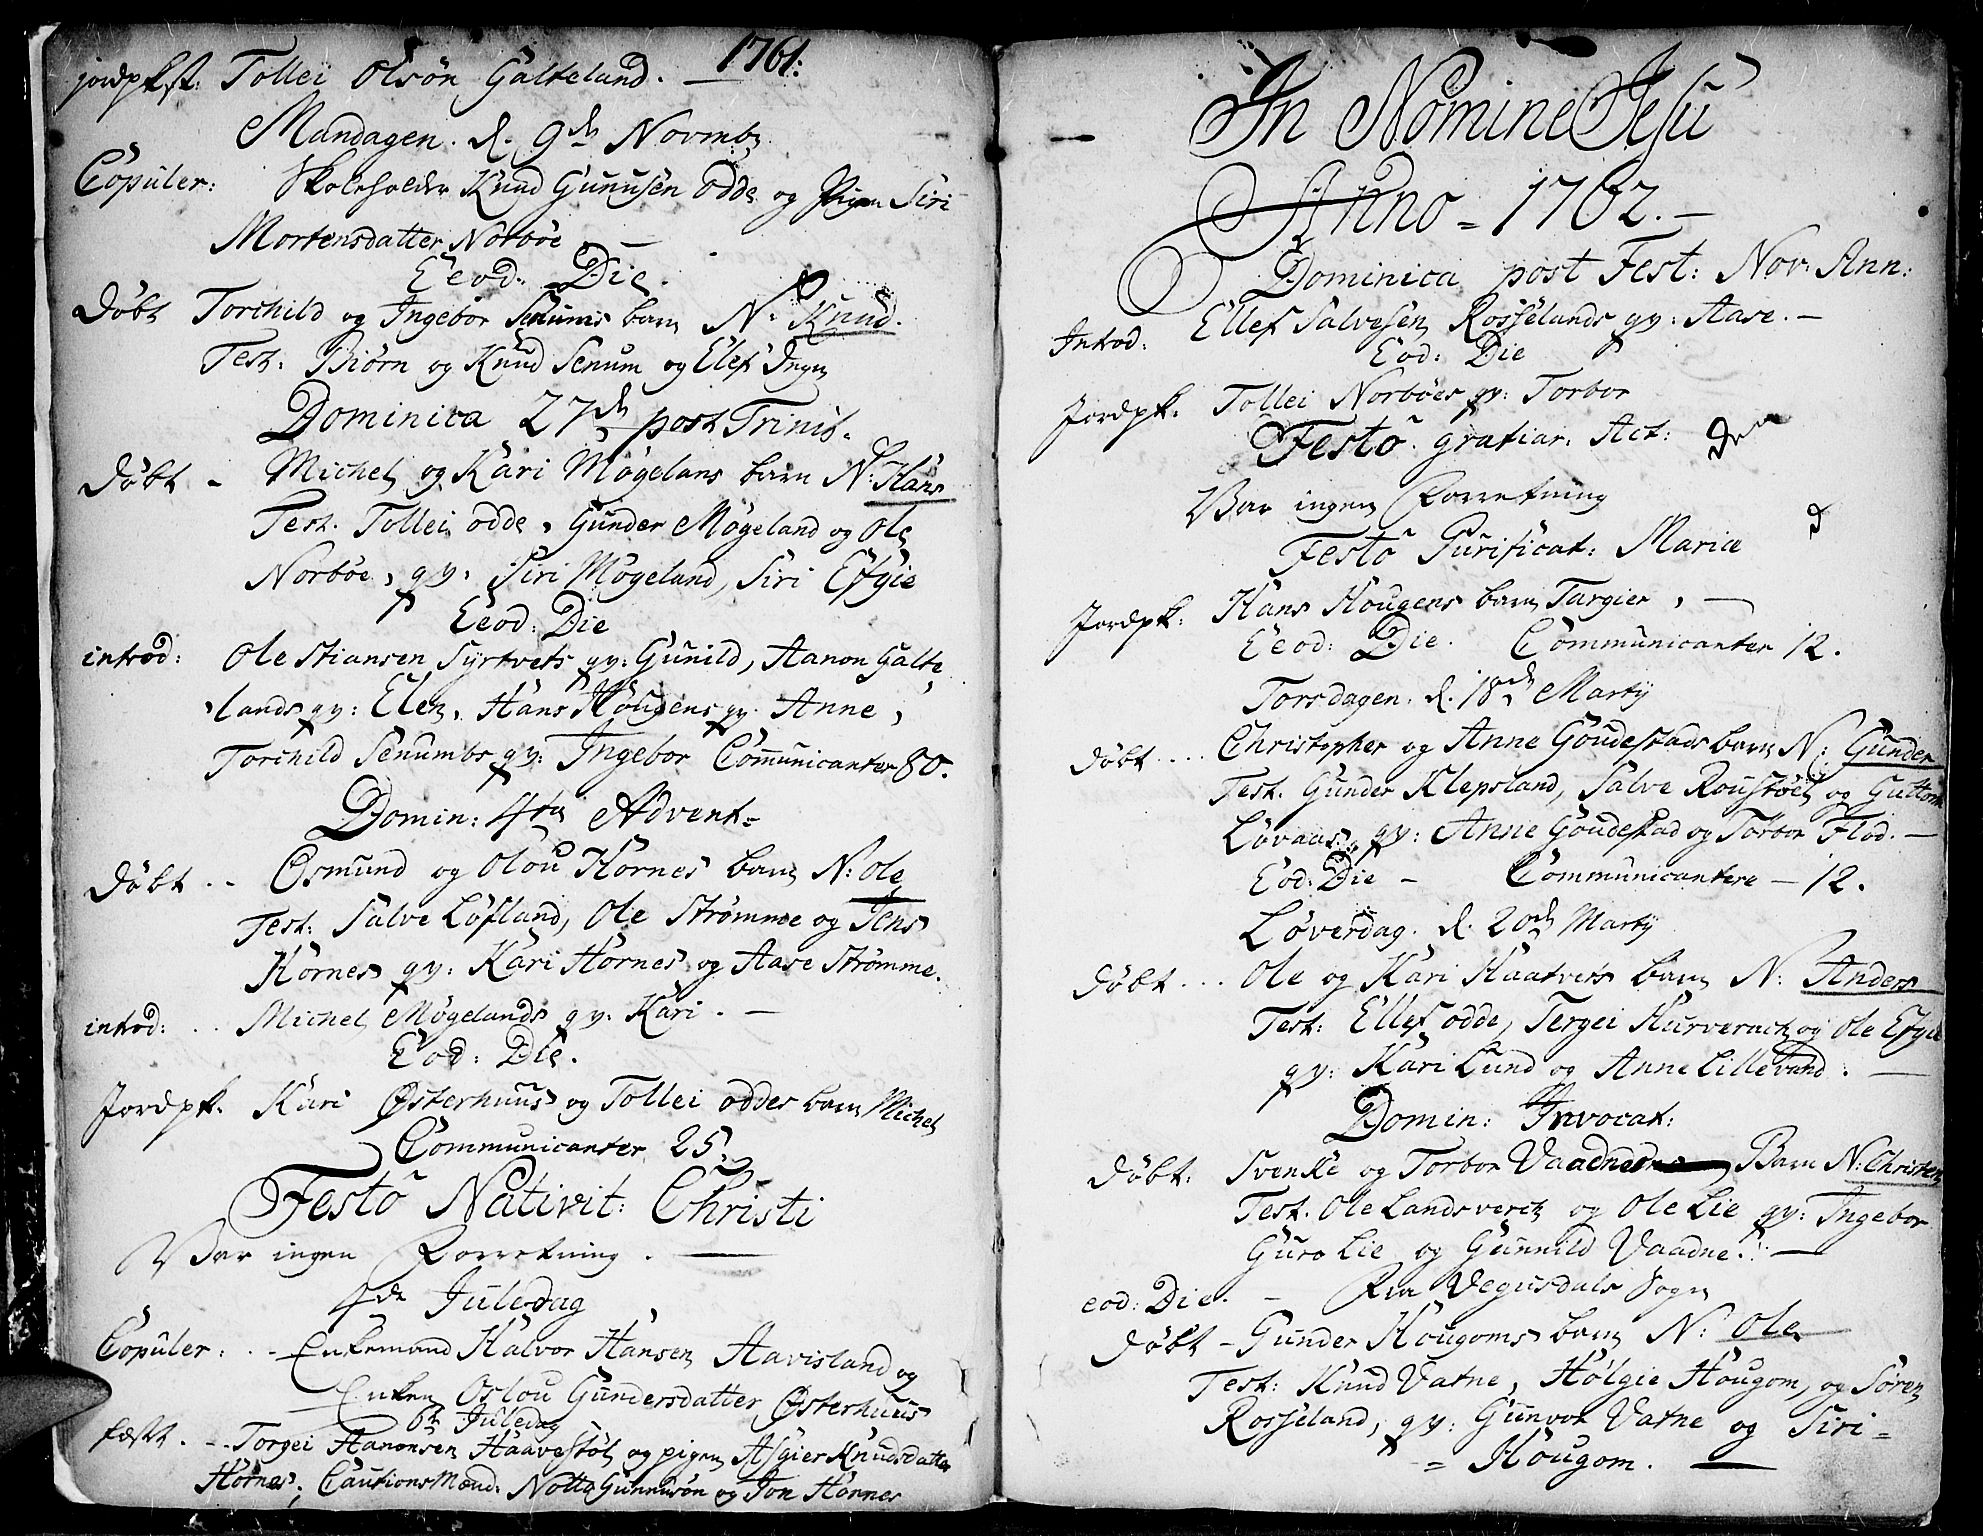 1761.
jordpkst: Tollei Olsön Galteland. —
Mandagen. d. 9de Novmb:
Copuler: Skoleholder Knud Gunusen Odde og Pigen Siri
Mortensdatter Norböe —
Eeod: Die.
Döbt Torchild og Ingebor Senums barn N: Knud.
Test: Biörn og Knud Senum og Elef
Dominica 27de post Trinit.
Döbt - Michel og Kari Mögelans barn N: Hans
Test. Tollei Odde, Gunder Mögeland og Ole
Norböe, qv: Siri Mögeland, Siri Esgie
Eeod: Die
introd: Ole Stiansen Syrtvets qv: Gunild, Aanon Galte
lands qv: Elen, Hans Hougens qv. Anne,
Torchild Senumbs qv: Ingebor Communicanter 80.
Domin: 4ta Advent.
Döbt .. Osmund og Olou Hornes barn N: Ole
Test: Salve Löfland, Ole Strömme og Jens
Hornes qv: Kari Hornes og Aase Strömme.
introd: .. Michel Mögelands qv: Kari. —
Eod: Die.
Jordpk. Kari Østerhuus og Tollei Oddes barn Michel
Communicanter 25.
Festo Nativit: Christi
Var ingen Forretning. —
4de Juledag
Copuler: .. Enkemand Halvor Hansen Aavisland og
Enken Oslou Gundersdatter Østerhuus
6te Juledag
fæstt. .. Torgei Aanonsen Haavestöl og pigen Asgier Knudsdatter
Hornes, Cautions Mænd: Notto Gunnusön og Jon Hornes
In Nomine Jesu
Anno = 1762. —
Dominica post Fest: Nov: Ann:
Introd: Ellef Salvesen Rosselands qv: Aase. —
Eod: Die
Jordpk: Tollei Norböes qv: Torbor
Festo gratiar: Act:
Var ingen Forretning
Festo Purificat: Mariæ
Jordpk: Hans Hougens barn Targier, —
Eeod: Die. Communicanter 12.
Torsdagen. d. 18de Martij
Döbt .... Christopher og Anne Goudestads barn N: Gunder
Test. Gunder Klepsland, Salve Roustöel og Guttorm
Lövaas, qv: Anne Goudestad og Torbor Flod. —
Eod: Die - Communicantere — 12.
Löverdag. d. 20de Martij
Döbt ... Ole og Kari Haatvets barn N: Anders
Test: Ellef Odde, Tergei Hurverack og Ole Esgie
qv: Kari Lund og Anne Lillevand. —
Domin: Invocat:
Döbt: Svenke og Torbor Vaadnes Barn N: Christen
Test. Ole Landsverck og Ole Lie qv: Ingebor
Guro Lie og Gunnild Vaadne. —
eod: Die. - Fra Vegusdals Sogn
Döbt - Gunder Hougoms barn N: Ole
Test: Knud Vatne, Hölgie Hougom, og Sören
Rosseland, qv: Gunvor Vatne og Siri =
= Hougom. —